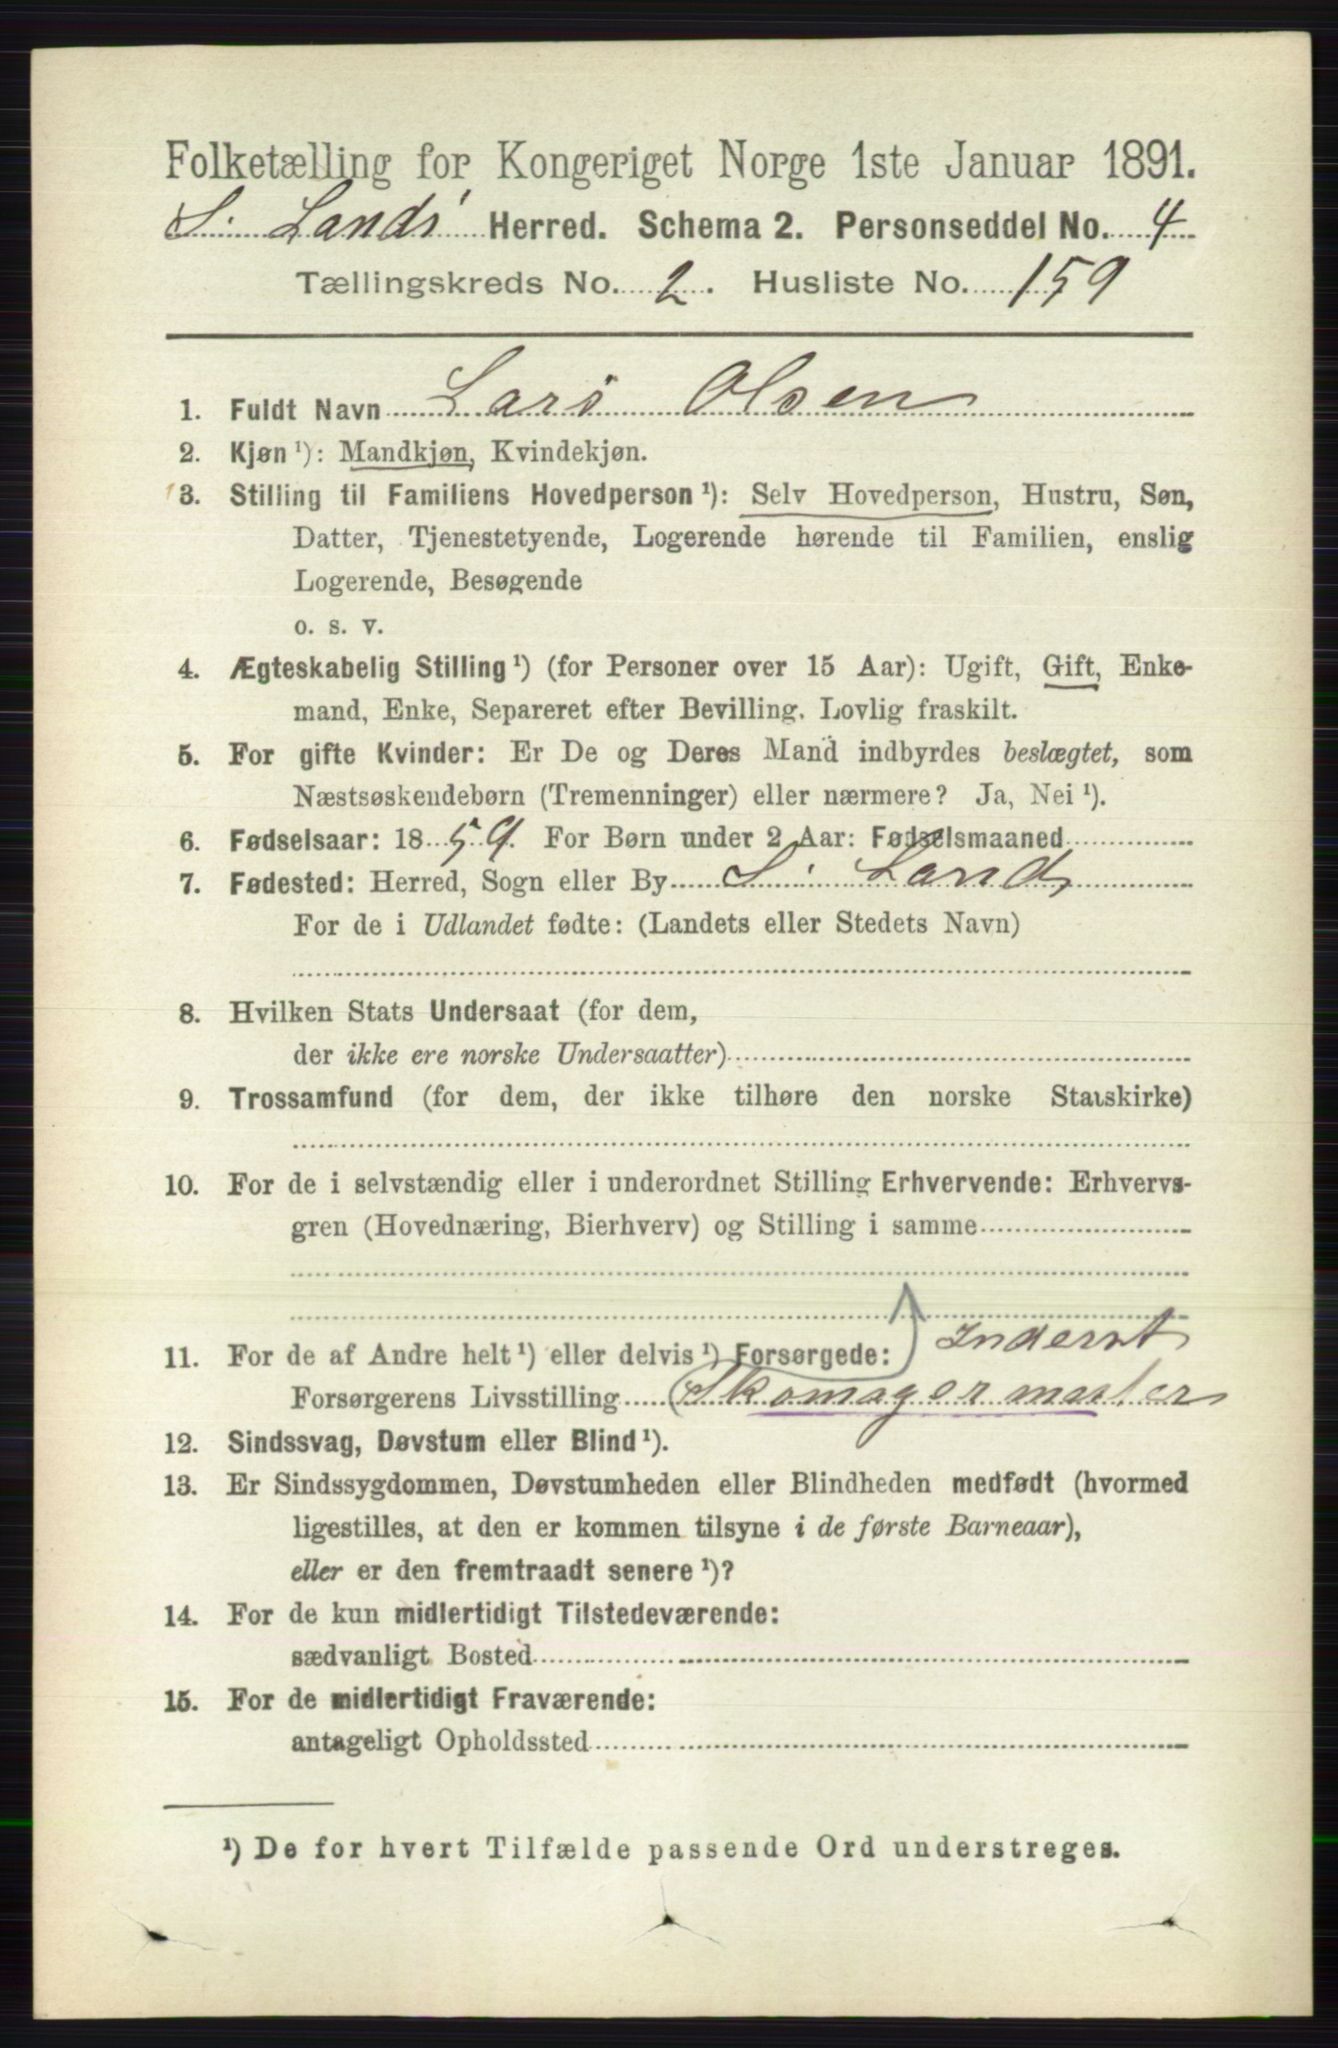 Folketælling for Kongeriget Norge 1ste Januar 1891.
S. Lands Herred. Schema 2. Personseddel No. 4
Tællingskreds No. 2. Husliste No. 159
1. Fuldt Navn Lars Olsen
2. Kjøn ¹): Mandkjøn, Kvindekjøn.
3. Stilling til Familiens Hovedperson ¹): Selv Hovedperson, Hustru, Søn,
Datter, Tjenestetyende, Logerende hørende til Familien, enslig
Logerende, Besøgende
o. s. v.
4. Ægteskabelig Stilling ¹) (for Personer over 15 Aar): Ugift, Gift, Enke-
mand, Enke, Separeret efter Bevilling. Lovlig fraskilt.
5. For gifte Kvinder: Er De og Deres Mand indbyrdes beslægtet, som
Næstsøskendebørn (Tremenninger) eller nærmere? Ja, Nei ¹).
6. Fødselsaar: 1859. For Børn under 2 Aar: Fødselsmaaned
7. Fødested: Herred, Sogn eller By S. Land
For de i Udlandet fødte: (Landets eller Stedets Navn)
8. Hvilken Stats Undersaat (for dem,
der ikke ere norske Undersaatter)
9. Trossamfund (for dem, der ikke tilhøre den norske Statskirke)
10. For de i selvstændig eller i underordnet Stilling Erhvervende: Erhvervs-
gren (Hovednæring, Bierhverv) og Stilling i samme
Inderst
11. For de af Andre helt ¹) eller delvis ¹) Forsørgede:
Forsørgerens Livsstilling Skomagermaster
12. Sindssvag, Døvstum eller Blind ¹).
13. Er Sindssygdommen, Døvstumheden eller Blindheden medfødt (hvormed
ligestilles, at den er kommen tilsyne i de første Barneaar),
eller er den fremtraadt senere ¹)?
14. For de kun midlertidigt Tilstedeværende:
sædvanligt Bosted
15. For de midlertidigt Fraværende:
antageligt Opholdssted
¹) De for hvert Tilfælde passende Ord understreges.